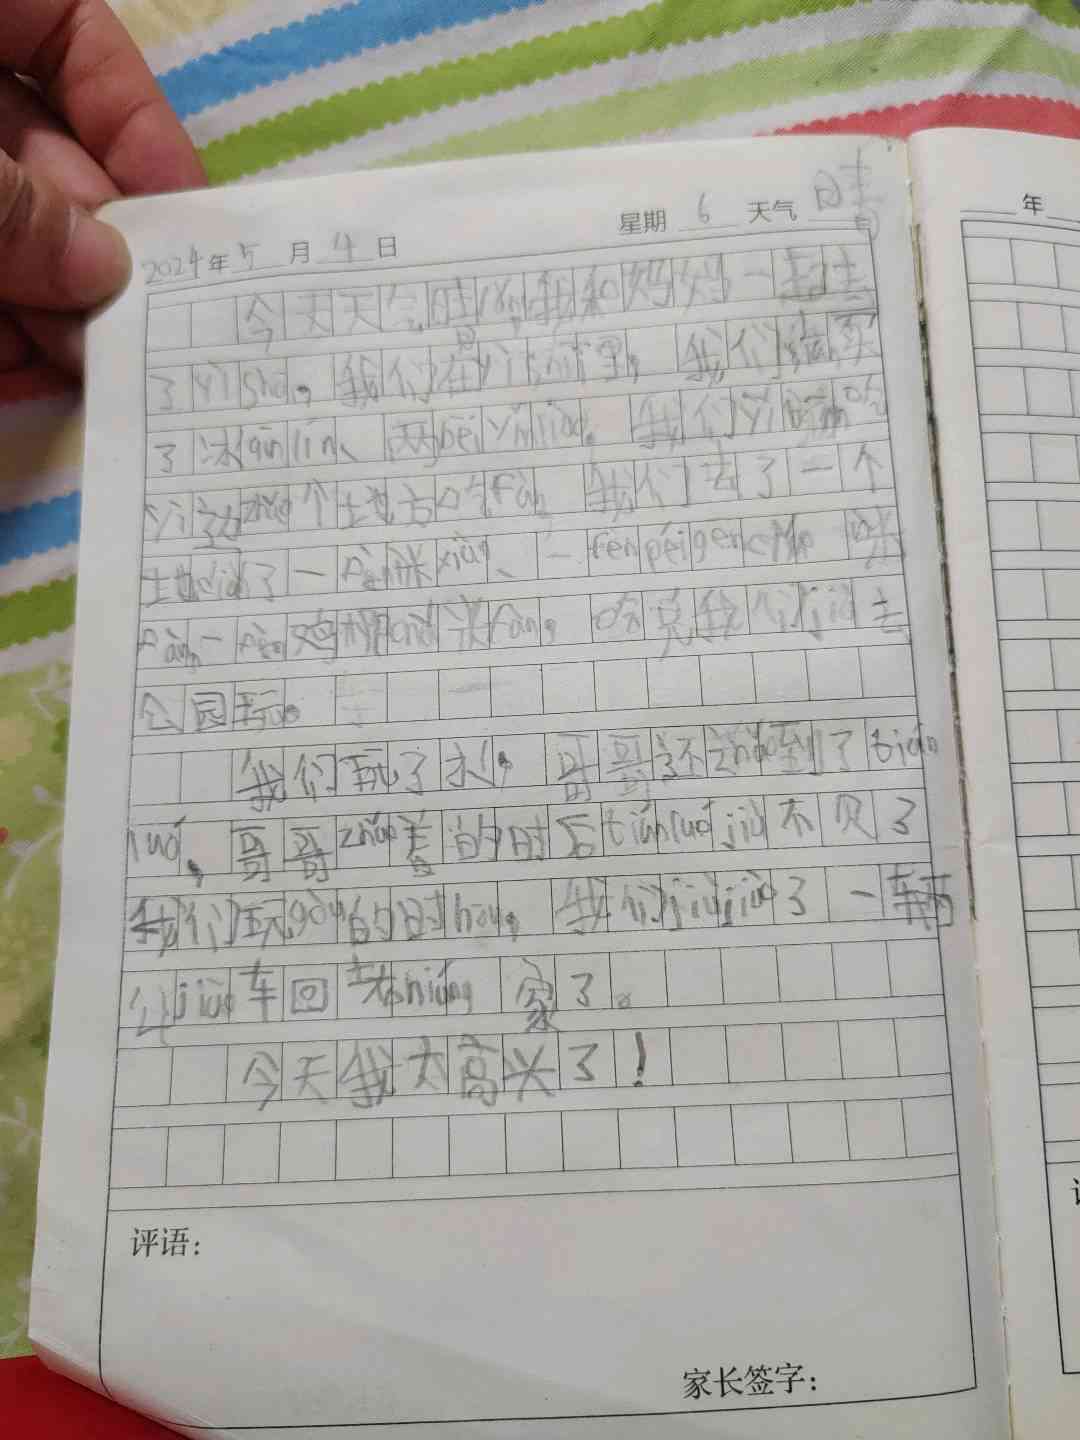 2024年5月4日 星期6 天气晴
今天天气晴lǎng,我和妈妈一起去
了yì shù。我们在yì shù里,我们 买
了冰qílín、两bēi yǐnliào。我们yì biān吃
yì 边zhǎo个地方吃fàn。我们去了一个
地diǎn了一 米xiàn、一fèn péigēn
fàn、一 鸡柳 fàn,吃完我们jiù去
公园玩。
我们玩了水,哥哥还zhǎo到了tián
luó,哥哥zhǎo着的时后tiánluó jiù不见了
我们玩gòu的时hòu,我们jiù jiào了一辆
公jiāo车回老 家了。
今天我太高兴了!
评语:
家长签字:
年